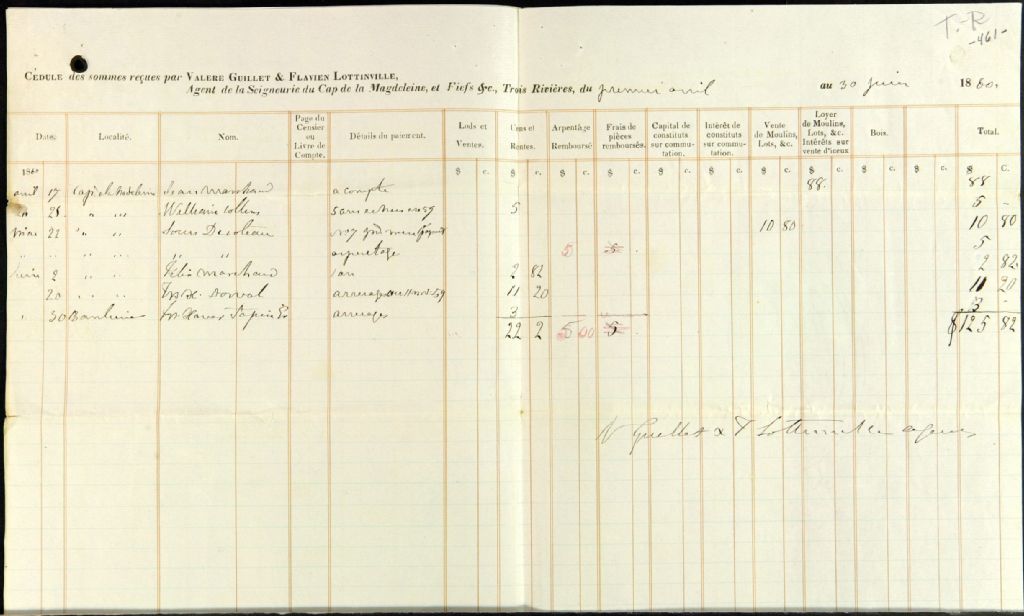 T.-R
-461-
CÉDULE des sommes reçues par VALERE GUILLET & FLAVIEN LOTTINVILLE,
Agent de la Seigneurie du Cap de la Magdeleine, et Fiefs &c., Trois Rivières, du premier avril au 30 juin 1860.
Date. Localité. Nom. Page du Censier ou Livre de Compte. Détails du paiement. Lods et Ventes. Cens et Rentes. Arpentage Remboursé Frais de pièces remboursés. Capital de constituts sur commutation. Intérêt de constituts sur commutation. Vente de Moulins, Lots, &c. Loyer de Moulins, Lots, &c. Intérêts sur vente d'iceux Bois. Total.
$ c. $ c. $ c. $ c. $ c. $ c. $ c. $ c. $ c. $ c. $ C.
1860
avril 17 Jean Marchand a compte 88 88
" 28 " " William 5 ans 59 5 5 -
mai 22 " " Louis 10 80 10 80
" " " " " " arpentage 5 5 5
Juin 2 " " Félix Marchand 1 an 2 82 2 82
20 " " Dorval arrerages 59 11 20 11 20
" 30 Banlieue arrerages 3 3
22 2 5 00 5 $125 82
V Guillet & F Lottinville agents